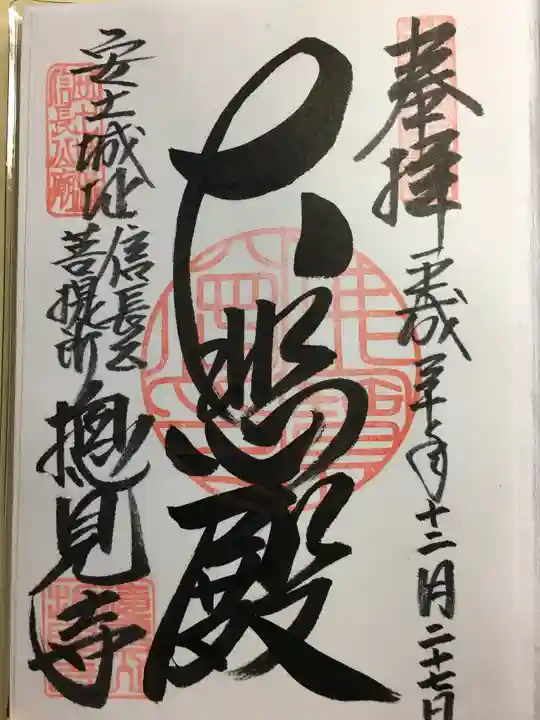 奉拝
平成三十年十二月二十七日
大悲殿
安土城址
信長公
菩提所
摠見寺
信長公廟